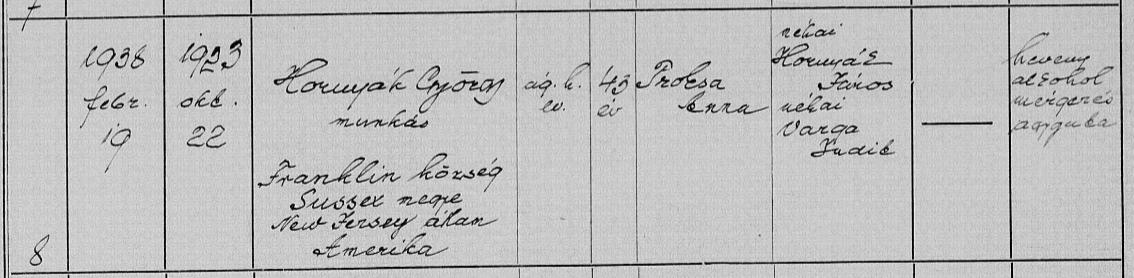 7
1938
febr.
19
1923
okt.
22
Hornyák György
munkás
Franklin község
Sussex megye
New Jersey állam
Amerika
ág. h.
ev.
43
év
Proksa
Anna
néhai
Hornyák
János
néhai
Varga
Judit
heveny
alkohol
mérgezés
8